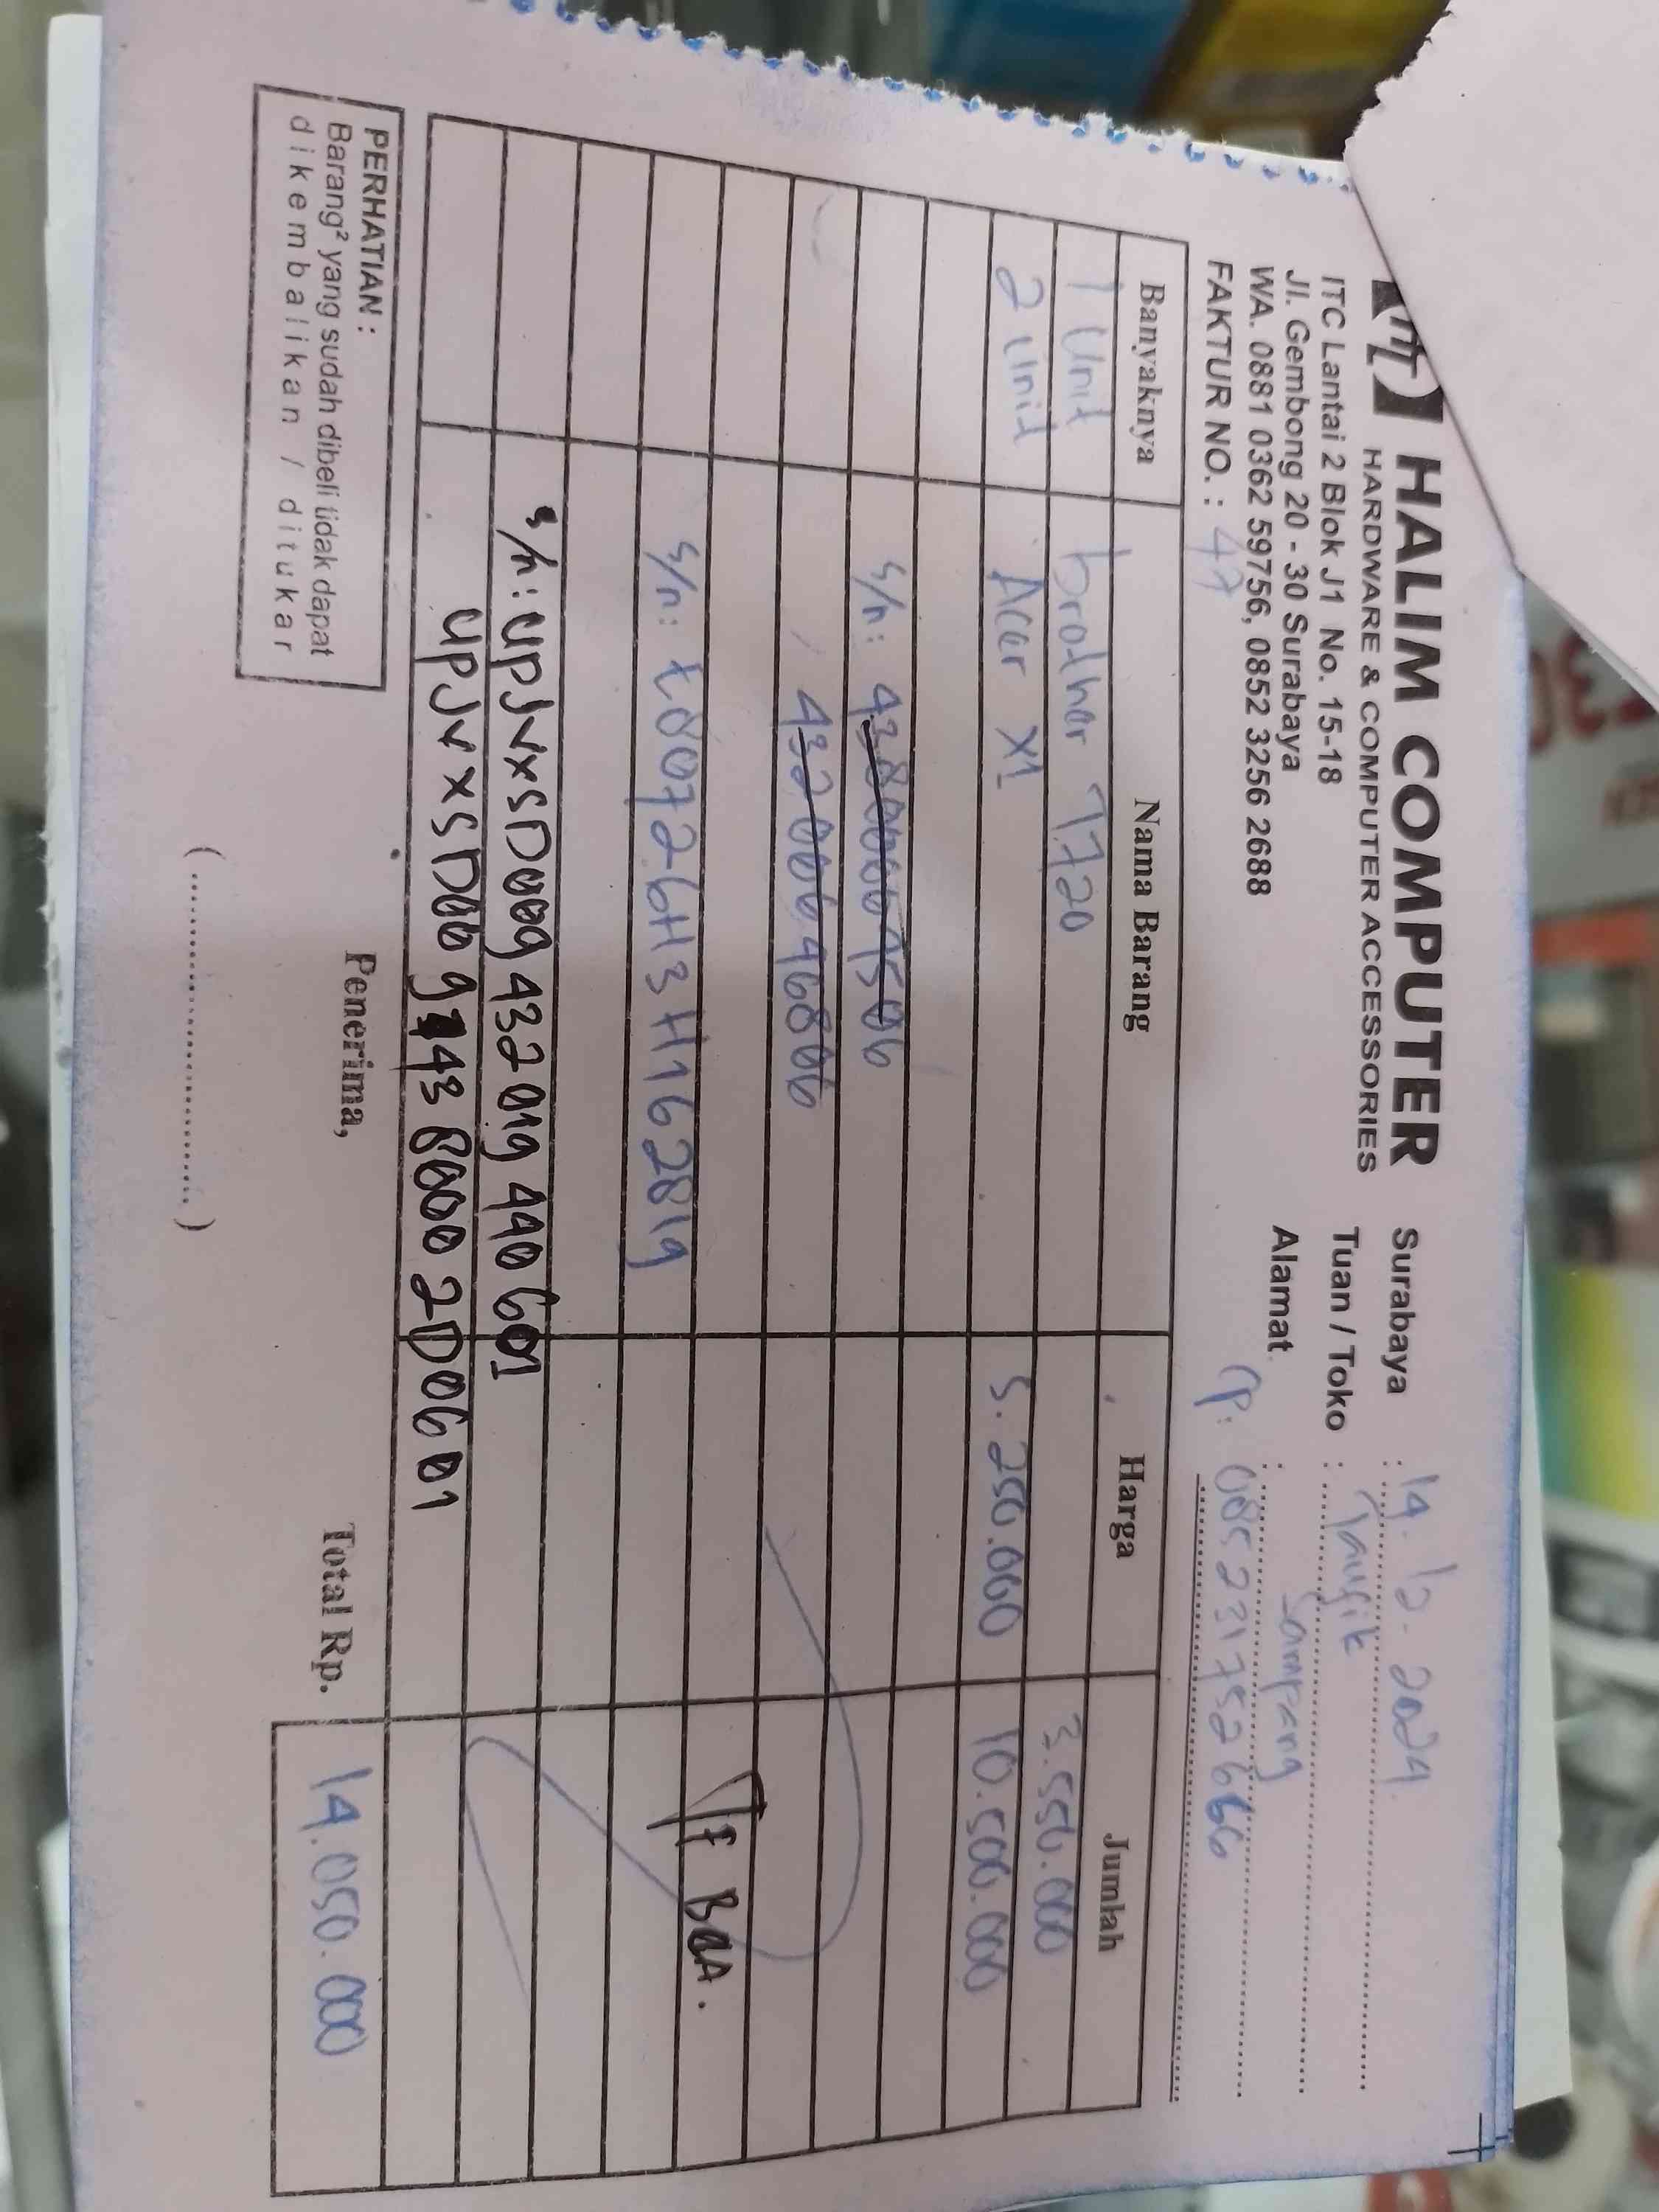 HALIM COMPUTER
HARDWARE & COMPUTER ACCESSORIES
ITC Lantai 2 Blok J1 No. 15-18
Jl. Gembong 20 - 30 Surabaya
WA. 0881 0362 59756, 0852 3256 2688
FAKTUR NO. : 47
Surabaya : 14. 12. 2024
Tuan / Toko : Taufik
Alamat : Sampang
Cp. 085231752666
Banyaknya Nama Barang Harga Jumlah
1 Unit brother T720 3.550.000
2 Unit Acer X1 5.250.000 10.500.000
s/n:
s/n: E80726H3H162819
TF BCA.
s/n: UPJVXSD009432019440601
UPJVXSD00914380002D0601
PERHATIAN :
Barang² yang sudah dibeli tidak dapat
dikembalikan / ditukar
Penerima,
(..............................)
Total Rp. 14.050.000